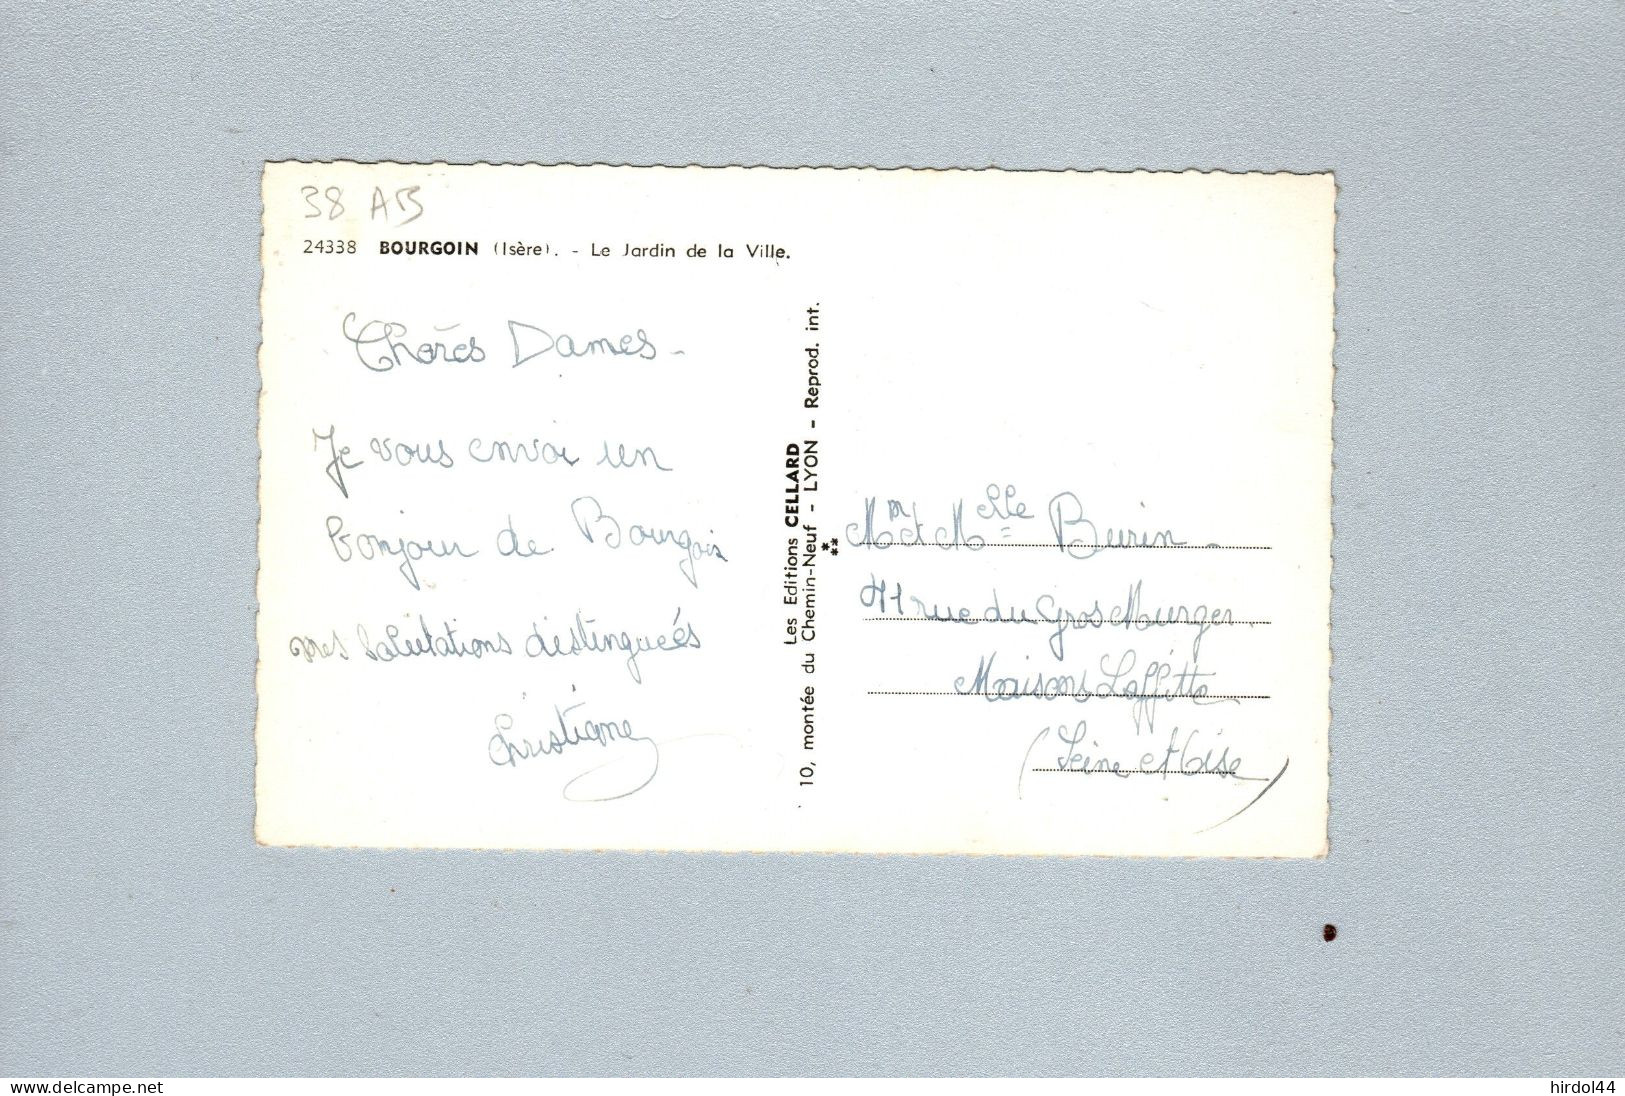 38 AB
24338 BOURGOIN (Isère). - Le Jardin de la Ville.
Chères Dames -
Je vous envoi un
bonjour de Bourgoin
mes Salutations distinguées
Christiane
Les Editions CELLARD
10, montée du Chemin-Neuf - LYON - Reprod. int.
Mm et Melle Burin -
41 rue du Gros Murger.
Maisons Laffitte
(Seine et Oise)
www.delcampe.net
hirdol44